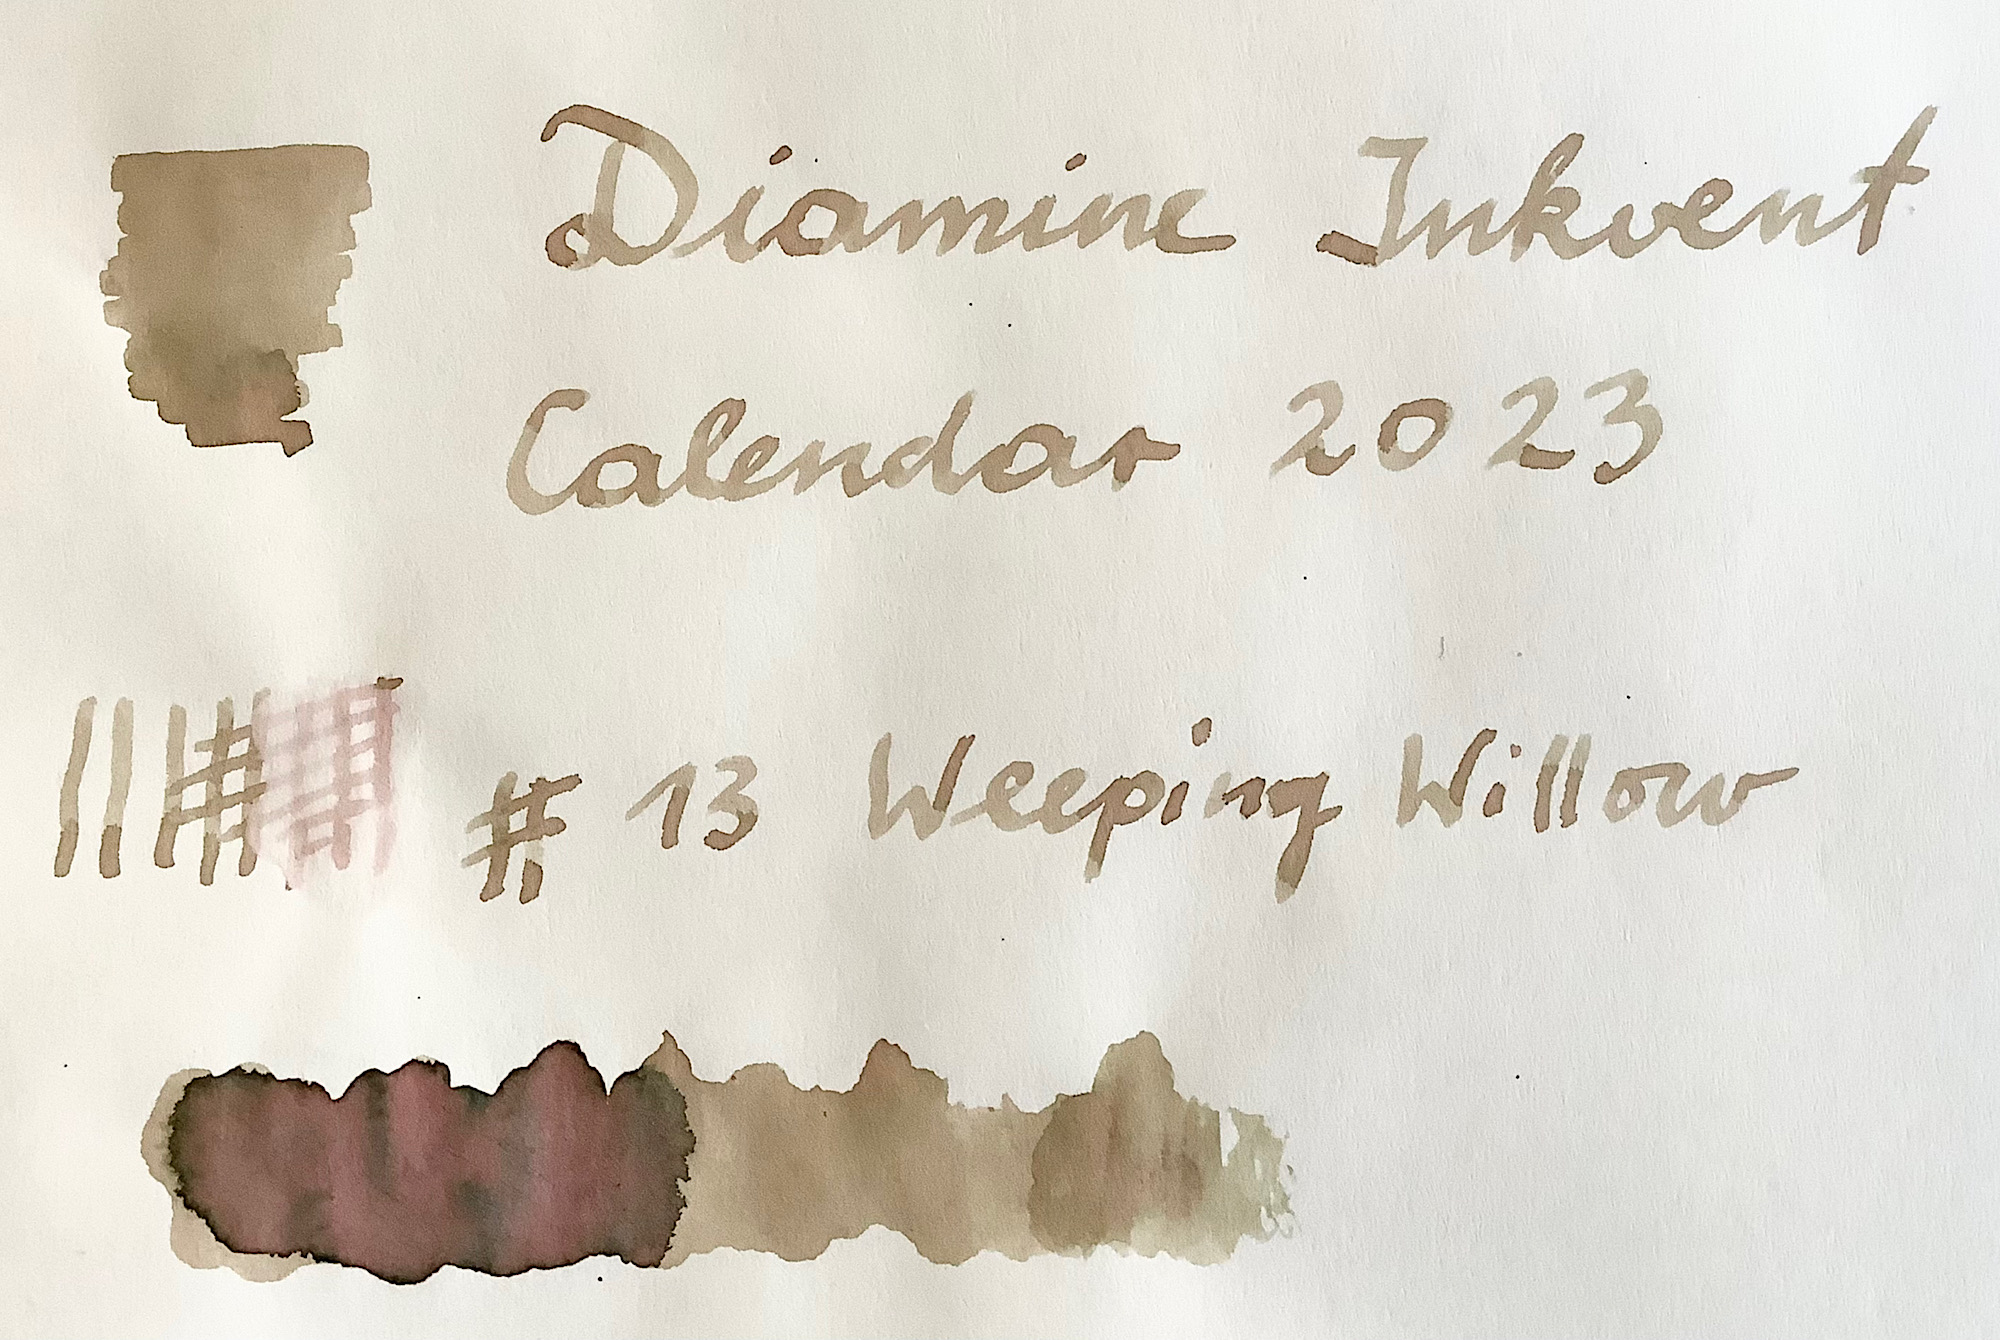 Diamine Inkvent
Calendar 2023
# 13 Weeping Willow